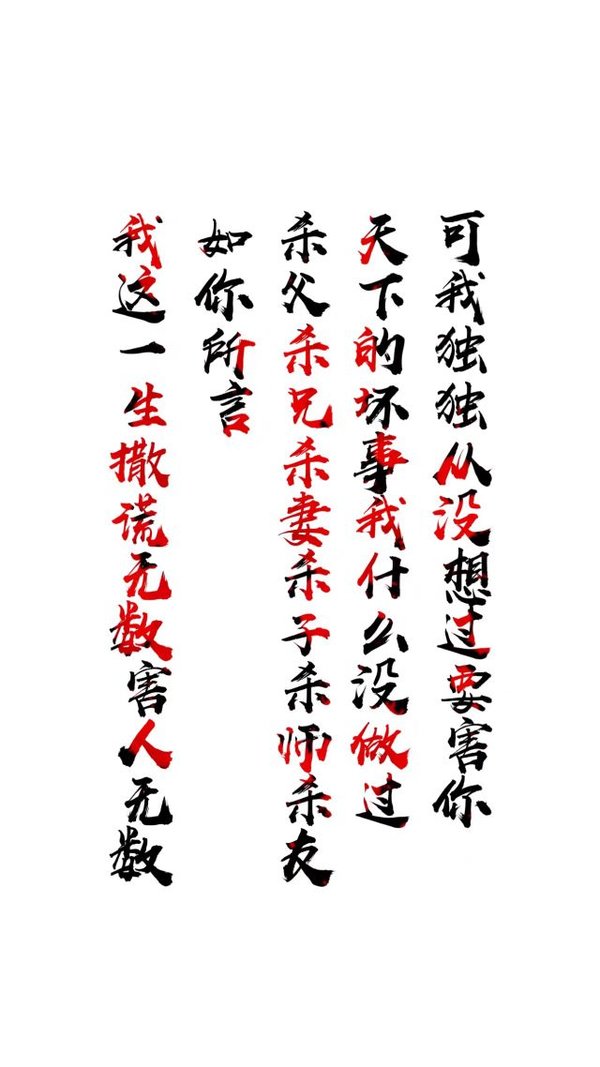 我这一生撒谎无数害人无数
如你所言
杀父杀兄杀妻杀子杀师杀友
天下的坏事我什么没做过
可我独独从没想过要害你